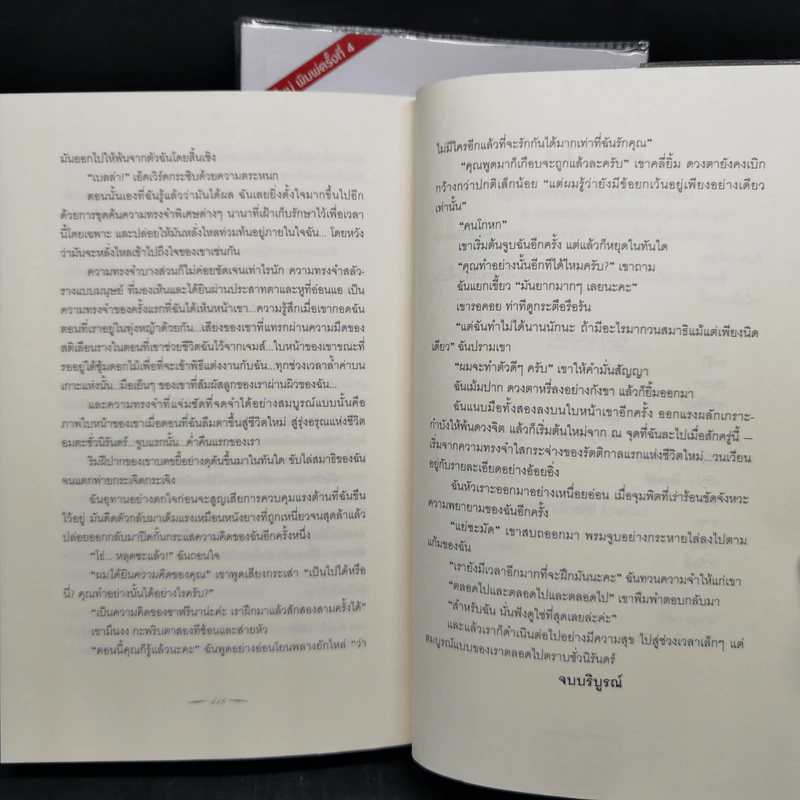 พิมพ์ครั้งที่ 4
มันออกไปให้พ้นจากตัวฉันโดยสิ้นเชิง
"เบลล่า!" เอ็ดเวิร์ดกระซิบด้วยความตระหนก
ตอนนั้นเองที่ฉันรู้แล้วว่ามันได้ผล ฉันเลยยิ่งตั้งใจมากขึ้นไปอีก
ด้วยการขุดค้นความทรงจำพิเศษต่างๆ นานาที่เฝ้าเก็บรักษาไว้เพื่อเวลา
นี้โดยเฉพาะ และปล่อยให้มันหลั่งไหลท่วมท้นอยู่ภายในใจฉัน... โดยหวัง
ว่ามันจะหลั่งไหลเข้าไปถึงใจของเขาเช่นกัน
ความทรงจำบางส่วนก็ไม่ค่อยชัดเจนเท่าไรนัก ความทรงจำสลัว-
รางแบบมนุษย์ ที่มองเห็นและได้ยินผ่านประสาทตาและหูที่อ่อนแอ เป็น
ความทรงจำของครั้งแรกที่ฉันได้เห็นหน้าเขา...ความรู้สึกเมื่อเขากอดฉัน
ตอนที่เราอยู่ในทุ่งหญ้าด้วยกัน...เสียงของเขาที่แทรกผ่านความมืดของ
สติเลือนรางในตอนที่เขาช่วยชีวิตฉันไว้จากเจมส์...ใบหน้าของเขาขณะที่
รออยู่ใต้ซุ้มดอกไม้เพื่อที่จะเข้าพิธีแต่งงานกับฉัน...ทุกช่วงเวลาล้ำค่าบน
เกาะแห่งนั้น...มือเย็นๆ ของเขาที่สัมผัสลูกของเราผ่านผิวของฉัน...
และความทรงจำที่แจ่มชัดที่จดจำได้อย่างสมบูรณ์แบบนั้นคือ
ภาพใบหน้าของเขาเมื่อตอนที่ฉันลืมตาขึ้นสู่ชีวิตใหม่ สู่รุ่งอรุณแห่งชีวิต
อมตะชั่วนิรันดร์...จูบแรกนั้น...ค่ำคืนแรกของเรา
ริมฝีปากของเขาบดขยี้อย่างดุดันขึ้นมาในทันใด ขับไล่สมาธิของฉัน
จนแตกพ่ายกระเจิดกระเจิง
ฉันอุทานอย่างตกใจก่อนจะสูญเสียการควบคุมแรงต้านที่ฉันขืน
ไว้อยู่ มันดีดตัวกลับมาเต็มแรงเหมือนหนังยางที่ถูกเหนี่ยวจนสุดล้าแล้ว
ปล่อยออกกลับมาปิดกั้นกระแสความคิดของฉันอีกครั้งหนึ่ง
"โอ๋... หลุดซะแล้ว!" ฉันถอนใจ
"ผมได้ยินความคิดของคุณ" เขาพูดเสียงกระเส่า "เป็นไปได้หรือ
นี่? คุณทำอย่างนั้นได้อย่างไรครับ?"
"เป็นความคิดของซาฟรีนาน่ะค่ะ เราฝึกมาแล้วสักสองสามครั้งได้"
เขามึนงง กะพริบตาสองทีซ้อนและส่ายหัว
"ตอนนี้คุณก็รู้แล้วนะคะ" ฉันพูดอย่างอ่อนโยนพลางยักไหล่ "ว่า
418
ไม่มีใครอีกแล้วที่จะรักกันได้มากเท่าที่ฉันรักคุณ"
"คุณพูดมาก็เกือบจะถูกแล้วละครับ" เขาคลี่ยิ้ม ดวงตายังคงเบิก
กว้างกว่าปกติเล็กน้อย "แต่ผมรู้ว่ายังมีข้อยกเว้นอยู่เพียงอย่างเดียว
เท่านั้น"
"คนโกหก"
เขาเริ่มต้นจูบฉันอีกครั้ง แต่แล้วก็หยุดในทันใด
"คุณทำอย่างนั้นอีกทีได้ไหมครับ?" เขาถาม
ฉันแยกเขี้ยว "มันยากมากๆ เลยนะคะ"
เขารอคอย ท่าทีดูกระตือรือร้น
"แต่ฉันทำไม่ได้นานนักนะ ถ้ามีอะไรมากวนสมาธิแม้แต่เพียงนิด
เดียว" ฉันปรามเขา
"ผมจะทำตัวดีๆ ครับ" เขาให้คำมั่นสัญญา
ฉันเม้มปาก ดวงตาหรี่ลงอย่างกังขา แล้วก็ยิ้มออกมา
ฉันแนบมือทั้งสองลงบนใบหน้าเขาอีกครั้ง ออกแรงผลักเกราะ-
กำบังให้พ้นดวงจิต แล้วก็เริ่มต้นใหม่จาก ณ จุดที่ฉันละไปเมื่อสักครู่นี้ –
เริ่มจากความทรงจำใสกระจ่างของรัตติกาลแรกแห่งชีวิตใหม่...วนเวียน
อยู่กับรายละเอียดอย่างอ้อยอิ่ง
ฉันหัวเราะออกมาอย่างเหนื่อยอ่อน เมื่อจุมพิตที่เร่าร้อนขัดจังหวะ
ความพยายามของฉันอีกครั้ง
"แย่ชะมัด" เขาสบถออกมา พรมจูบอย่างกระหายไล่ลงไปตาม
แก้มของฉัน
"เรายังมีเวลาอีกมากที่จะฝึกมันนะคะ" ฉันทวนความจำให้แก่เขา
"ตลอดไปและตลอดไปและตลอดไป" เขาพึมพำตอบกลับมา
"สำหรับฉัน นั่นฟังดูใช่ที่สุดเลยล่ะค่ะ"
และแล้วเราก็ดำเนินต่อไปอย่างมีความสุข ไปสู่ช่วงเวลาเล็กๆ แต่
สมบูรณ์แบบของเราตลอดไปตราบชั่วนิรันดร์
จบบริบูรณ์